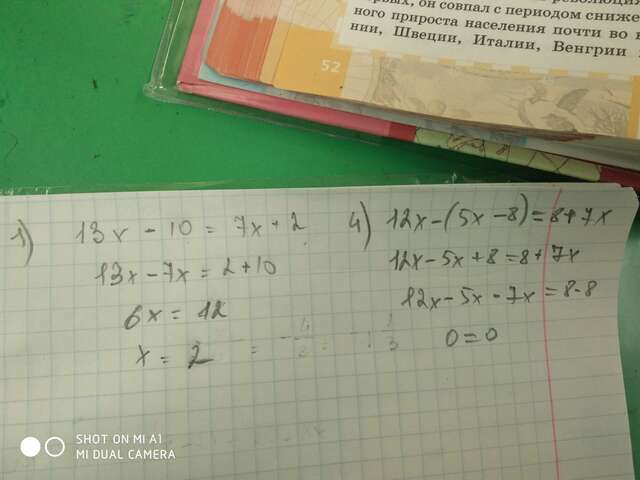 революция
первых, он совпал с периодом сниже
ного прироста населения почти во в
нии, Швеции, Италии, Венгрии
52
1) 13x - 10 = 7x + 2
13x - 7x = 2 + 10
6x = 12
x = 2
4) 12x - (5x - 8) = 8 + 7x
12x - 5x + 8 = 8 + 7x
12x - 5x - 7x = 8 - 8
0 = 0
SHOT ON MI A1
MI DUAL CAMERA